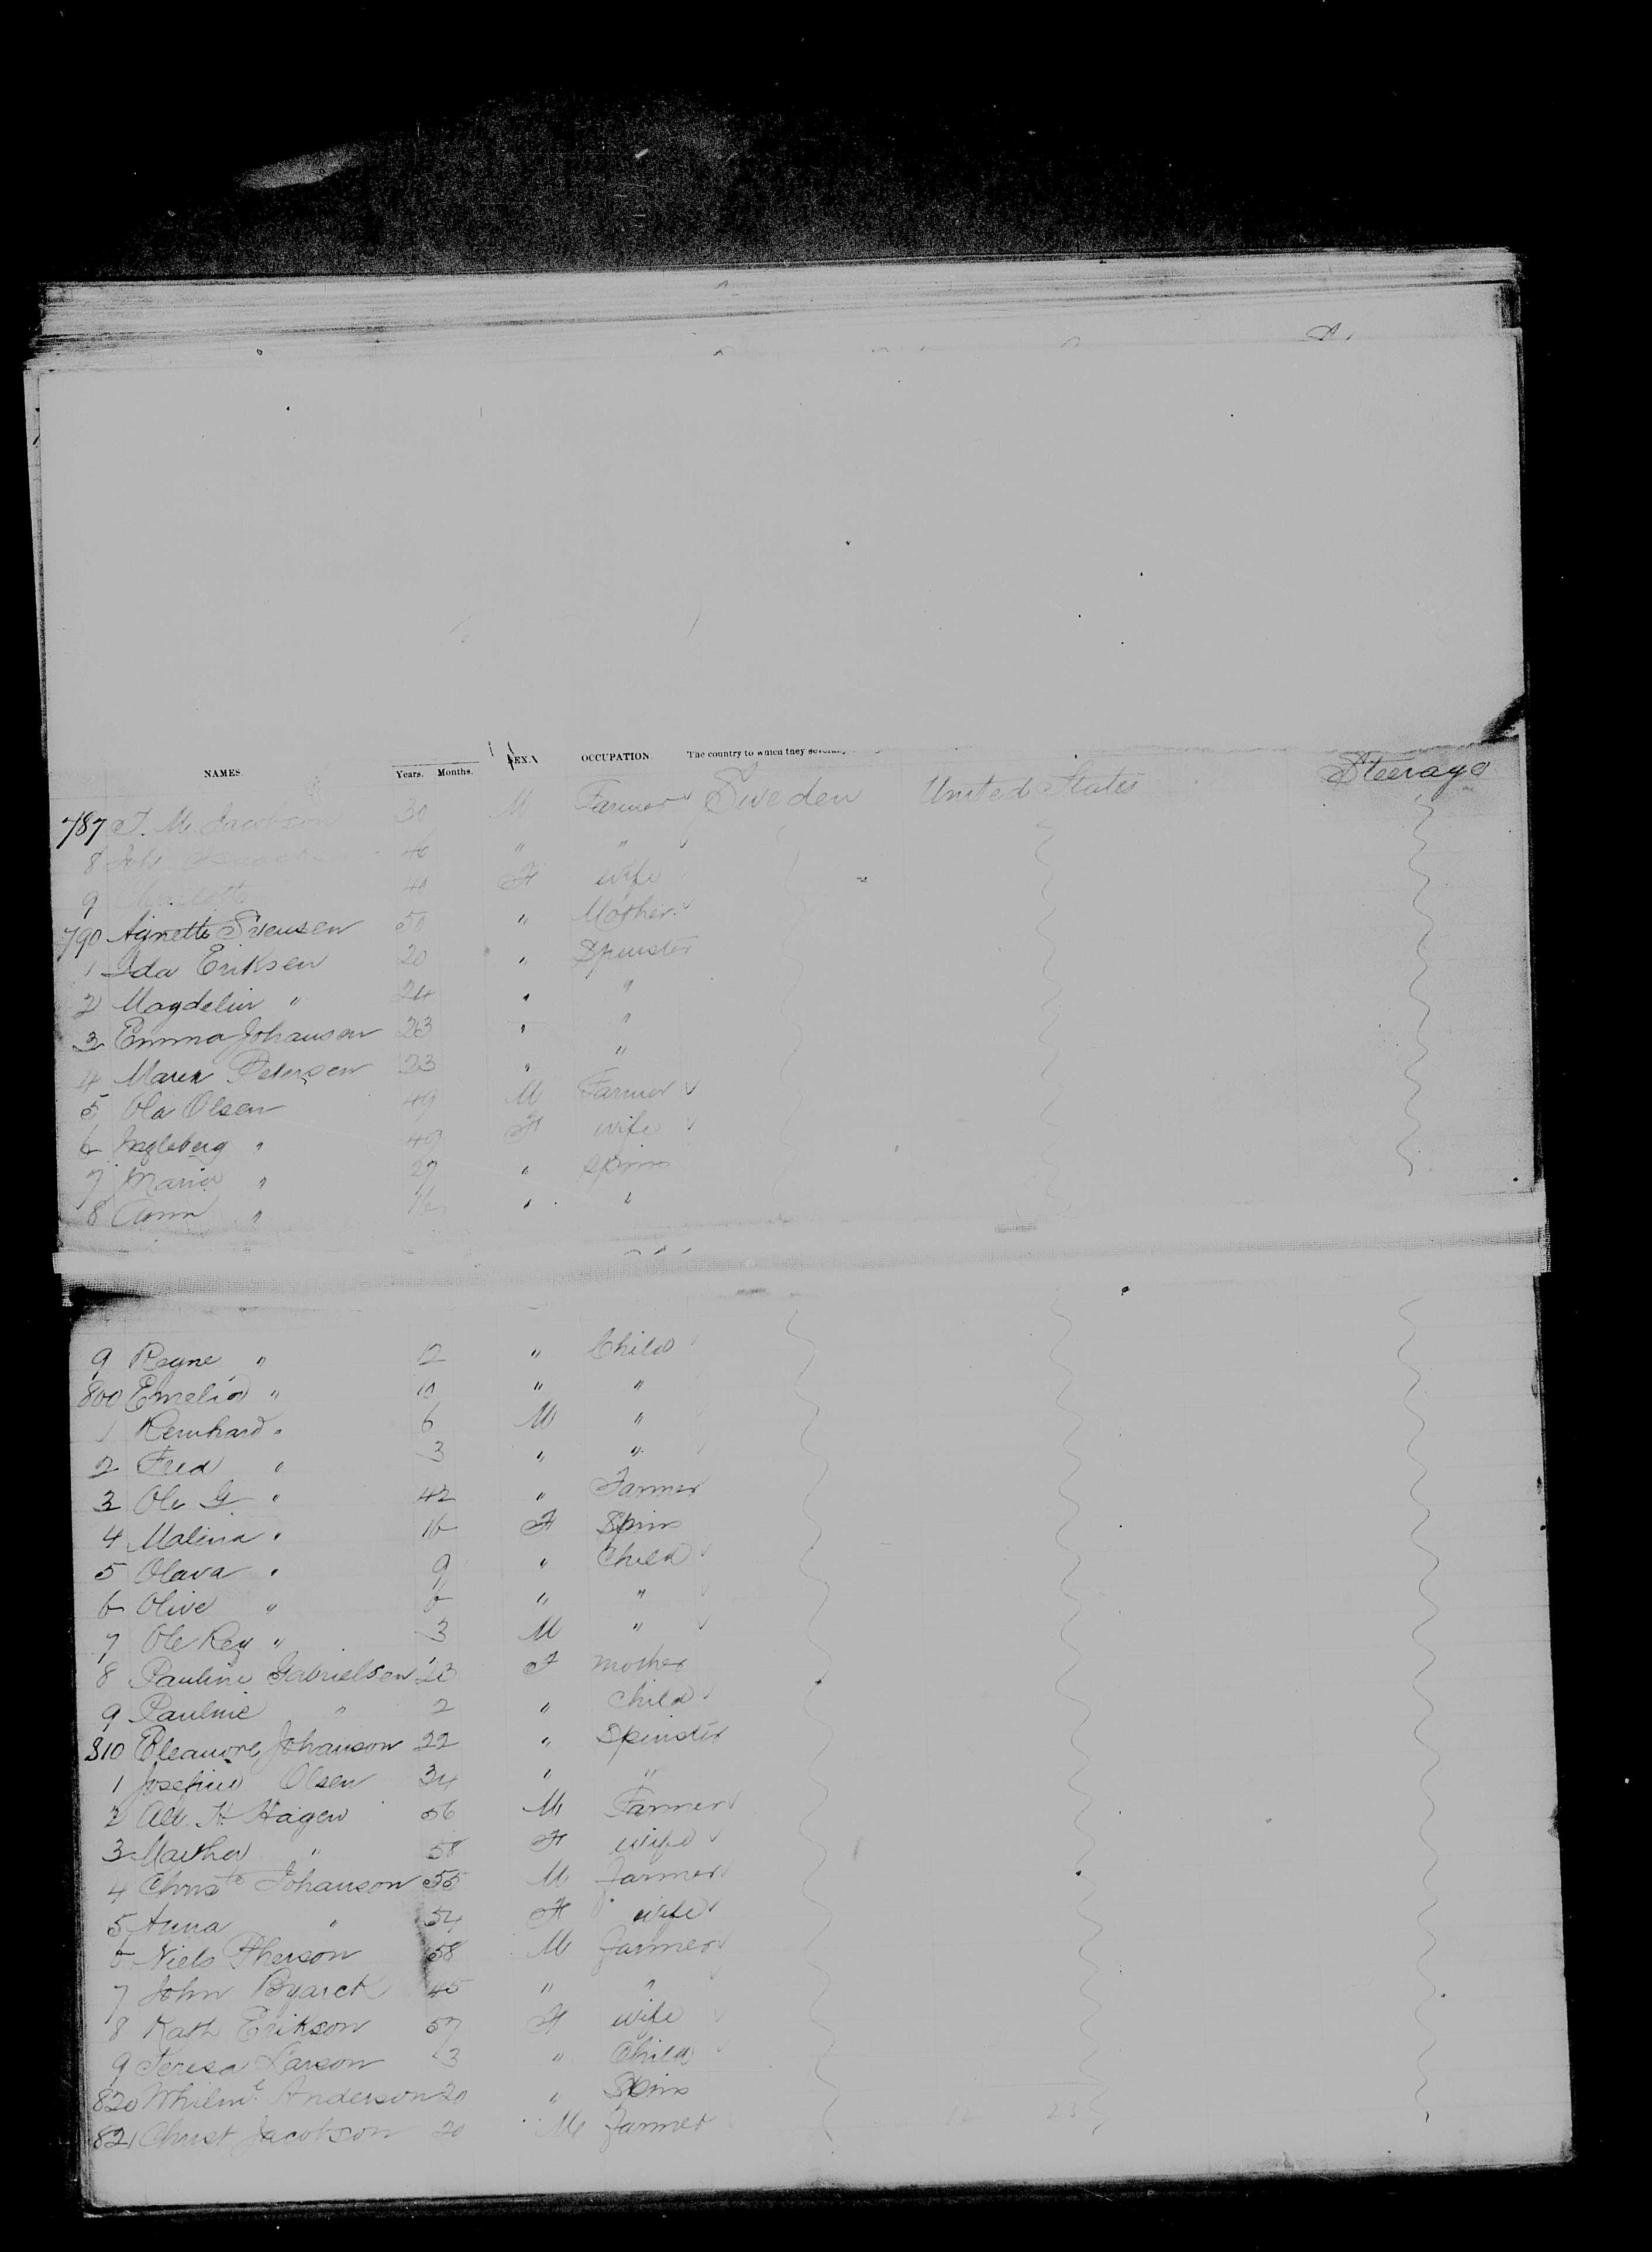 NAMES. Years. Months. SEX. OCCUPATION. The country to which they
787 T. M. Jacobson 30 M Farmer Sweden United States Steerage
8 46 " "
9 Charlotte 40 F wife
790 Agnette Svensen 50 " Mother
1 Ida Eriksen 20 " Spinster
2 Magdelin " 24 " "
3 Emma Johansen 23 " "
4 Maren Petersen 23 " "
5 Ola Olsen 49 M Farmer
6 Ingleberg " 49 F wife
7 Maria " 27 " Spins
8 Ann " 16 " "
9 Regne " 12 " Child
800 Emelia " 10 " "
1 Reinhard " 6 M "
2 Fred " 3 " "
3 Ole G " 42 " Farmer
4 Malina " 16 F Spins
5 Olava " 9 " Child
6 Olive " 6 " "
7 Ole Rey " 3 M "
8 Pauline Gabrielsen 23 F Mother
9 Pauline " 2 " Child
810 Eleanore Johanson 22 " Spinster
1 Josefine Olsen 34 " "
2 H Hagen 56 M Farmer
3 Martha " 58 F wife
4 Christe Johanson 55 M Farmer
5 Anna " 54 F wife
6 Niels Pherson 58 M Farmer
7 John Byarck 45 " "
8 Kath Erikson 57 F wife
9 Teresa Larson 3 " Child
820 Whilme Anderson 20 " Spins
821 Christ Jacobson 20 M Farmer